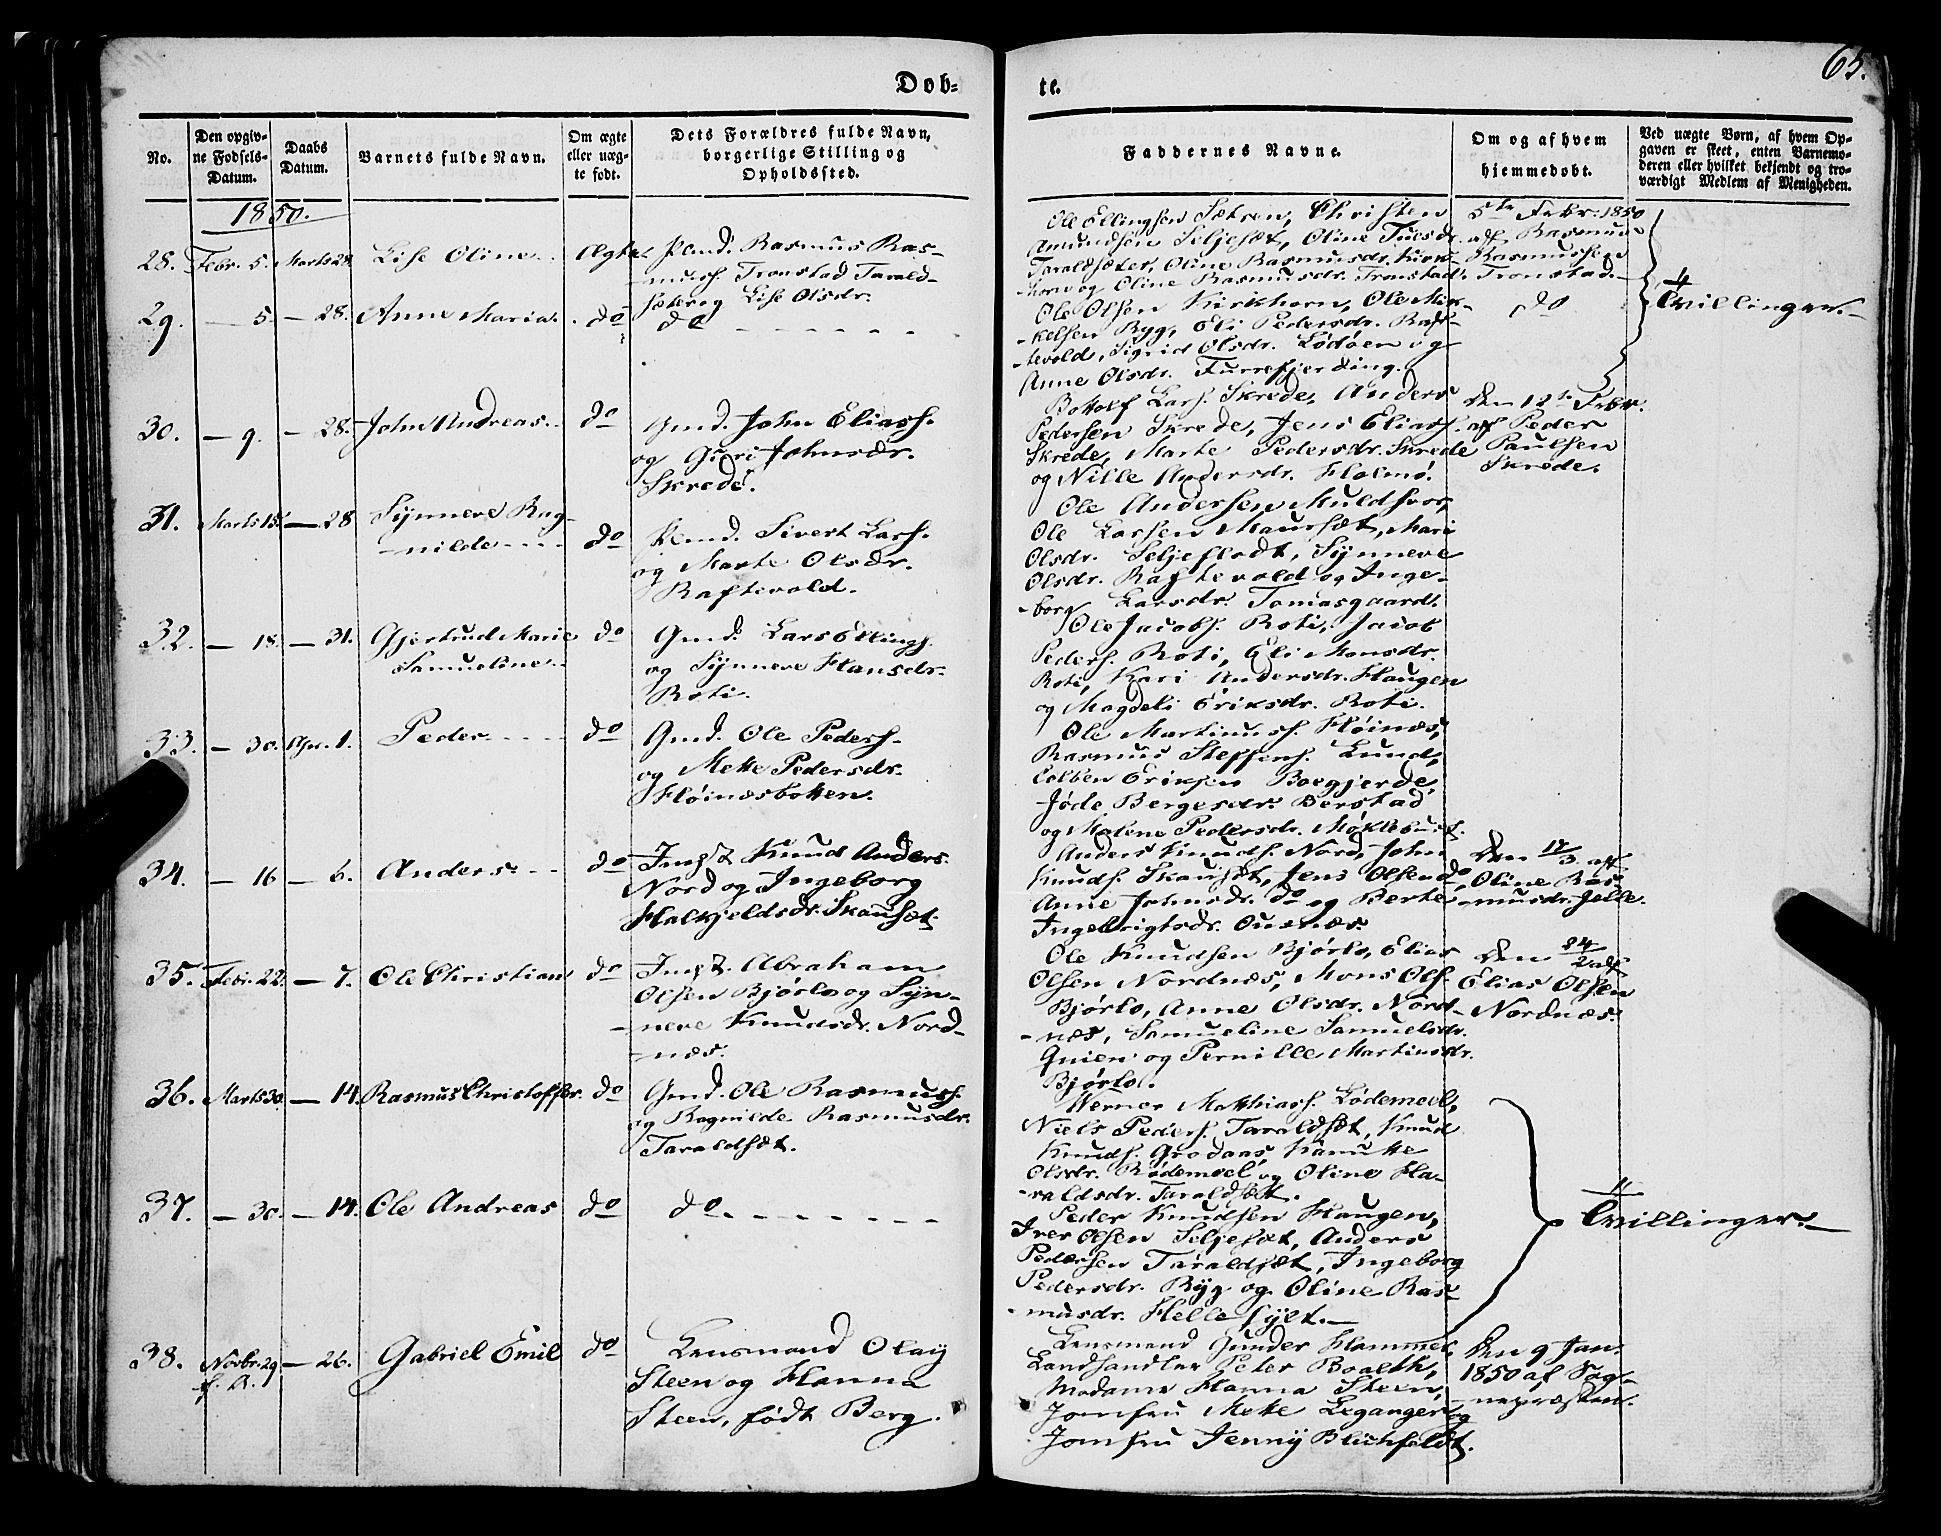 65.
Døb=
te.
No.
Den opgiv-
ne Fødsels-
Datum.
Daabs
Datum.
Barnets fulde Navn.
Om ægte
eller uæg-
te født.
Dets Forældres fulde Navn,
borgerlige Stilling og
Opholdssted.
Faddernes Navne.
Om og af hvem
hjemmedøbt.
Ved uægte Børn, af hvem Op-
gaven er skeet, enten Barnemo-
deren eller hvilket bekjendt og tro-
værdigt Medlem af Menigheden.
1850.
28. Febr. 5. Marts 28. Lise Oline Ægte
Pmd. Rasmus Ras-
muss. Tronstad Tarald-
sæter og Lise Olsdr.
Ole Ellingsen Sætren, Christen
Amundsen Seljesæt, Oline
Taraldsæter, Oline Rasmusdr. Kirk-
horn og Oline Rasmusdr. Tronstad.
5te Febr. 1850
af Rasmus
Rasmussen
Tronstad.
29. — 5. — 28. Anne Maria. do
do
Ole Olsen Kirkhorn, Ole Mik-
kelsen Byg, Eli Pedersdr. Raf-
tevold, Sigrid Olsdr. Lødøen og
Anne Olsdr. Furrefjerding.
do
Tvillinger.
30. — 9. — 28. John Andreas. do
Gmd. John Eliass.
og Guri Johnsdr.
Skrede.
Bottolf Lars. Skrede, Anders
Pedersen Skrede, Jens Eliass.
Skrede, Marte Pedersdr. Skrede
og Nille Andersdr. Holmø.
Den 12te Febr.
af Peder
Paulsen
Skrede.
31. Marts 15. — 28 Synneve Rag-
nilde do
Pmd. Sivert Lars.
og Marte Olsdr.
Raftevold.
Ole Andersen Muldsvor,
Ole Larsen Maursæt, Mari
Olsdr. Seljeflodt, Synneve
Olsdr. Raftevold og Inge-
borg Larsdr. Tomasgaard.
32. — 18. — 31. Gjertrud Marie
Samueline do
Gmd. Lars Ellings.
og Synneve Hansdr.
Roti.
Ole Jacobs. Roti, Jacob
Peders. Roti, Eli Monsdr.
Roti, Kari Andersdr. Haugen
og Magdeli Eriksdr. Roti.
33. — 30. Apr. 1. Peder do
Gmd. Ole Peders.
og Mette Pedersdr.
Høinæsbotten.
Ole Martinuss. Høinæs,
Rasmus Steffens. Lund,
Colben Eriksen Boegjerde,
Jøde Bergesdr. Berstad
og Malene Pedersdr. Møklebust.
34. — 16 — 6. Anders do
Ingst. Knud Anders.
Nord og Ingeborg
Halkjeldsdr. Skausæt.
Anders Knuds. Nord, John
Knuds. Skausæt, Jens Olsen do,
Anne Johnsdr. do og Berte
Ingebrigtsdr. Ousnæs.
Den 17/3 af
Oline Ras-
musdr. Jelle.
35. Febr. 22. — 7. Ole Christian do
Ingst. Abraham
Olsen Bjørlo og Syn-
neve Knudsdr. Nord-
næs.
Ole Knudsen Bjørlo, Elias
Olsen Nordnæs, Mons Ols.
Bjørlo, Anne Olsdr. Nord-
næs, Samueline Samuelsdr.
Gnien og Pernille Martinsdr.
Bjørlo.
Den 24/2 af
Elias Olsen
Nordnæs.
36. Marts 30. — 14. Rasmus Christoffer. do
Gmd. Ole Rasmuss.
og Ragnilde Rasmusdr.
Taraldsæt.
Werner Matthias. Lødemeel,
Niels Peders. Taraldsæt, Knud
Knuds. Grodaas, Kanutte
Olsdr. Rødemeel og Oline Ha-
raldsdr. Taraldsæt.
37. — 30. — 14. Ole Andreas do
do
Peder Knudsen Haugen,
Iver Olsen Seljesæt, Anders
Pedersen Taraldsæt, Ingeborg
Pedersdr. Byg og Oline Ras-
musdr. Hellesylt.
Tvillinger.
38. Novbr. 29 — 26. Gabriel Emil do
f. A.
Lensmand Olay
Steen og Hanna
Steen, født Berg.
Lensmand Gunder Hammer,
Landhandler Peter Boalth,
Madame Hanna Steen,
Jomfru Mette Leganger og
Jomfru Jenny Blichfeldt.
Den 9 Jan.
1850 af Sog-
nepræsten.